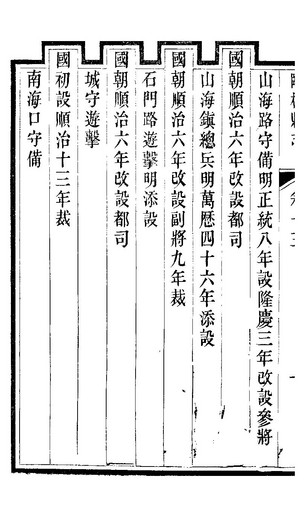 山海路守備明正統八年設隆慶三年改設參將
國朝順治六年改設都司
山海鎮總兵明萬曆四十六年添設
國朝順治六年改設副將九年裁
石門路遊擊明添設
國朝順治六年改設都司
城守遊擊
國初設順治十三年裁
南海口守備